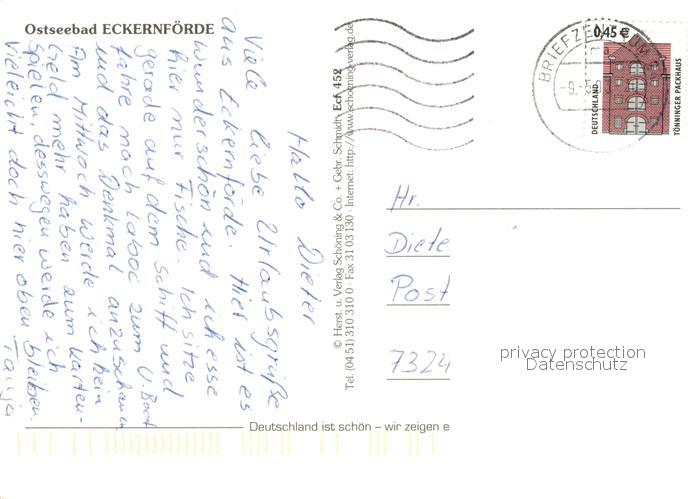 Ostseebad ECKERNFÖRDE
Hallo Dieter
Viele liebe Urlaubsgrüße
aus Eckernförde. Hier ist es
wunderschön und ich esse
hier nur Fische. Ich sitze
gerade auf dem Schiff und
fahre nach Laboe zum U.Boot
und das Denkmal anzuschauen
Am Mittwoch werde ich kein
Geld mehr haben zum karten-
spielen desswegen werde ich
vieleicht doch hier oben bleiben.
Tanja
© Herst. u. Verlag Schöning & Co. + Gebr. Schmidt · Ecf 452
Tel. (04 51) 310 310 0 · Fax 31 03 130 · Internet: http://www.schoening-verlag.de
BRIEFZENTRUM
0,45 €
DEUTSCHLAND
TÖNNINGER PACKHAUS
Hr.
Diete
Post
7324
privacy protection
Datenschutz
Deutschland ist schön – wir zeigen e